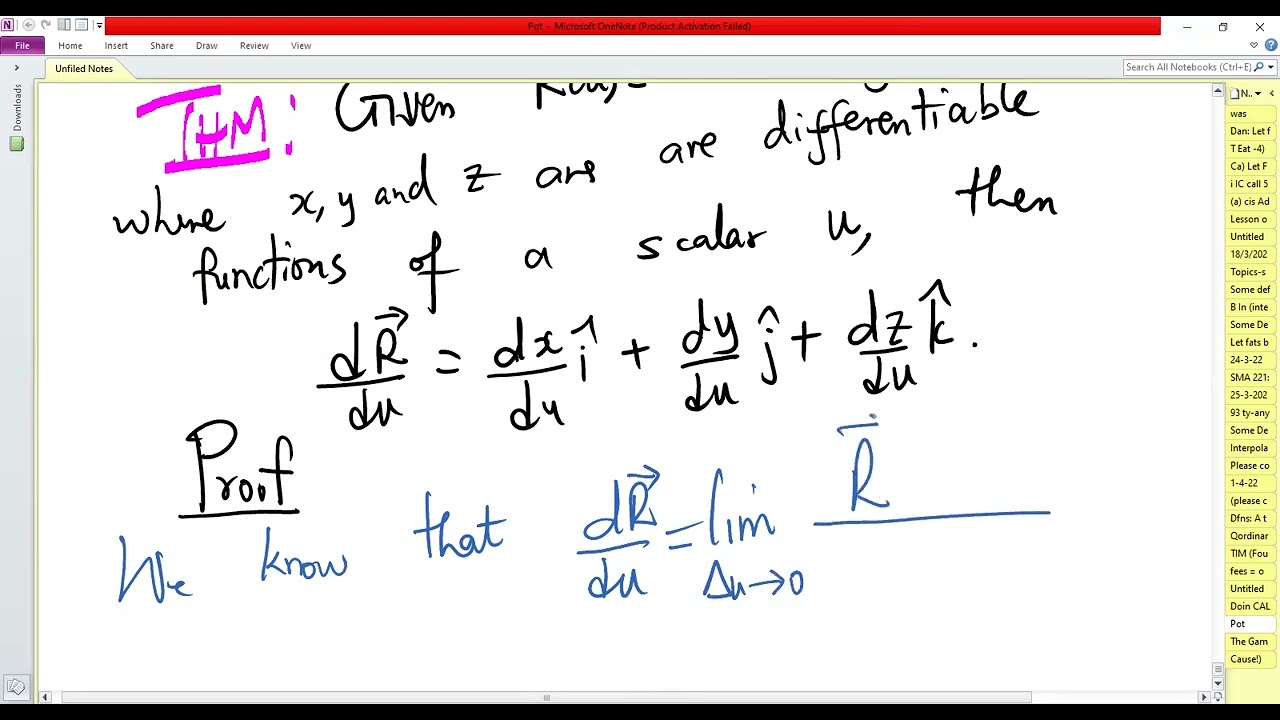 Pot - Microsoft OneNote (Product Activation Failed)
File Home Insert Share Draw Review View
Unfiled Notes
Search All Notebooks (Ctrl+E)
Downloads
THM: Given
where x, y and z are are differentiable
functions of a scalar u, then
dR⃗/du = dx/du î + dy/du ĵ + dz/du k̂.
Proof
We know that dR⃗/du = lim Δu→0 R⃗
N..
was
Dan: Let f
T Eat -4)
Ca) Let F
i IC call 5
(a) cis Ad
Lesson o
Untitled
18/3/202
Topics-s
Some def
B In (inte
Some De
Let fats b
24-3-22
SMA 221:
25-3-202
93 ty-any
Some De
Interpola
Please co
1-4-22
(please c
Dfns: A t
Qordinar
TIM (Fou
fees = o
Untitled
Doin CAL
Pot
The Gam
Cause!)